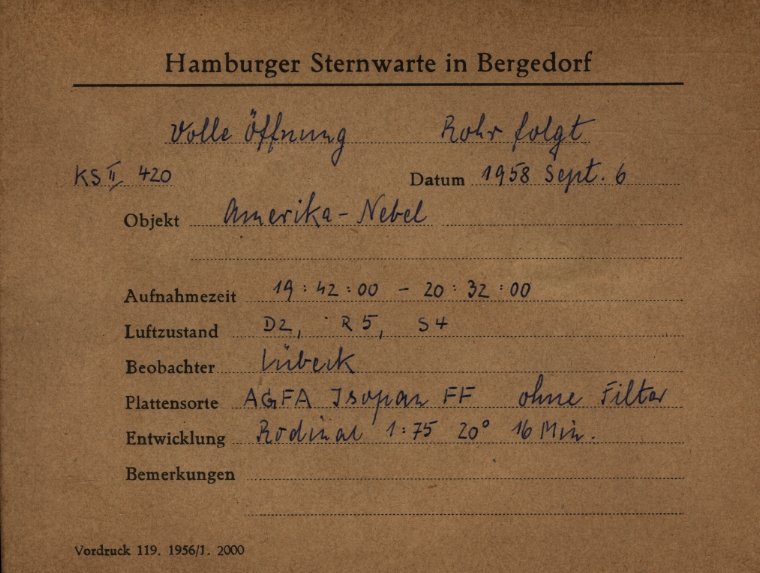 Hamburger Sternwarte in Bergedorf
Volle Öffnung Rohr folgt
KS II 420 Datum 1958 Sept. 6
Objekt Amerika-Nebel
Aufnahmezeit 19:42:00 - 20:32:00
Luftzustand D2, R5, S4
Beobachter Lübeck
Plattensorte AGFA Isopan FF ohne Filter
Entwicklung Rodinal 1:75 20° 16 Min.
Bemerkungen
Vordruck 119. 1956/1. 2000